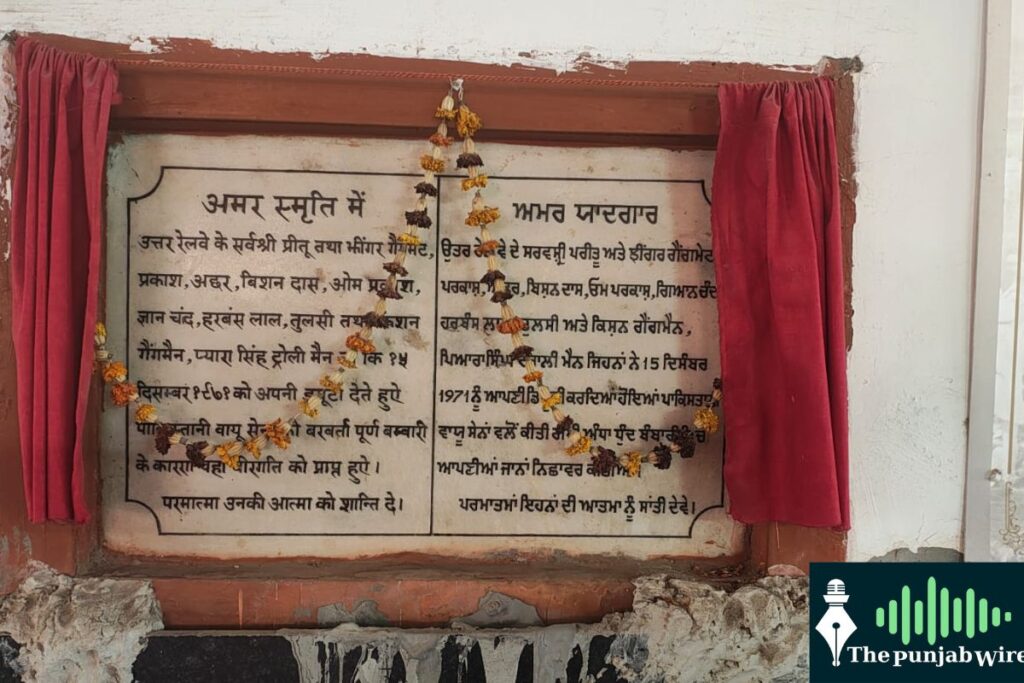 अमर स्मृति में
उत्तर रेलवे के सर्वश्री प्रीतू तथा भींगर गैंगमेट,
प्रकाश, अद्दर, बिशन दास, ओम
ज्ञान चंद, हरबंस लाल, तुलसी
गैंगमैन, प्यारा सिंह ट्रोली मैन १५
दिसम्बर १९७१ को अपनी देते हुऐ
वायू बरबर्ता पूर्ण बम्बारी
के कारण को प्राप्त हुऐ।
परमात्मा उनकी आत्मा को शान्ति दे।
ਅਮਰ ਯਾਦਗਾਰ
ਉਤਰ ਦੇ ਸਰਵਸ਼੍ਰੀ ਪਰੀਤੂ ਅਤੇ ਝੀਂਗਰ ਗੈਂਗਮੇਟ
ਪਰਕਾਸ਼, ਬਿਸ਼ਨ ਦਾਸ, ਓਮ ਪਰਕਾਸ਼, ਗਿਆਨ ਚੰਦ
ਹਰਬੰਸ ਅਤੇ ਕਿਸ਼ਨ ਗੈਂਗਮੈਨ,
ਪਿਆਰਾ ਸਿੰਘ ਮੈਨ ਜਿਹਨਾਂ ਨੇ 15 ਦਿਸੰਬਰ
1971 ਨੂੰ ਆਪਣੀ ਕਰਦਿਆਂ ਹੋਦਿਆਂ
ਵਾਯੂ ਸੇਨਾਂ ਵਲੋਂ ਕੀਤੀ ਅੰਧਾ ਧੁੰਦ
ਆਪਣੀਆਂ ਜਾਨਾਂ ਨਿਛਾਵਰ
ਪਰਮਾਤਮਾਂ ਇਹਨਾਂ ਦੀ ਆਤਮਾ ਨੂੰ ਸਾਂਤੀ ਦੇਵੇ।
The Punjab Wire